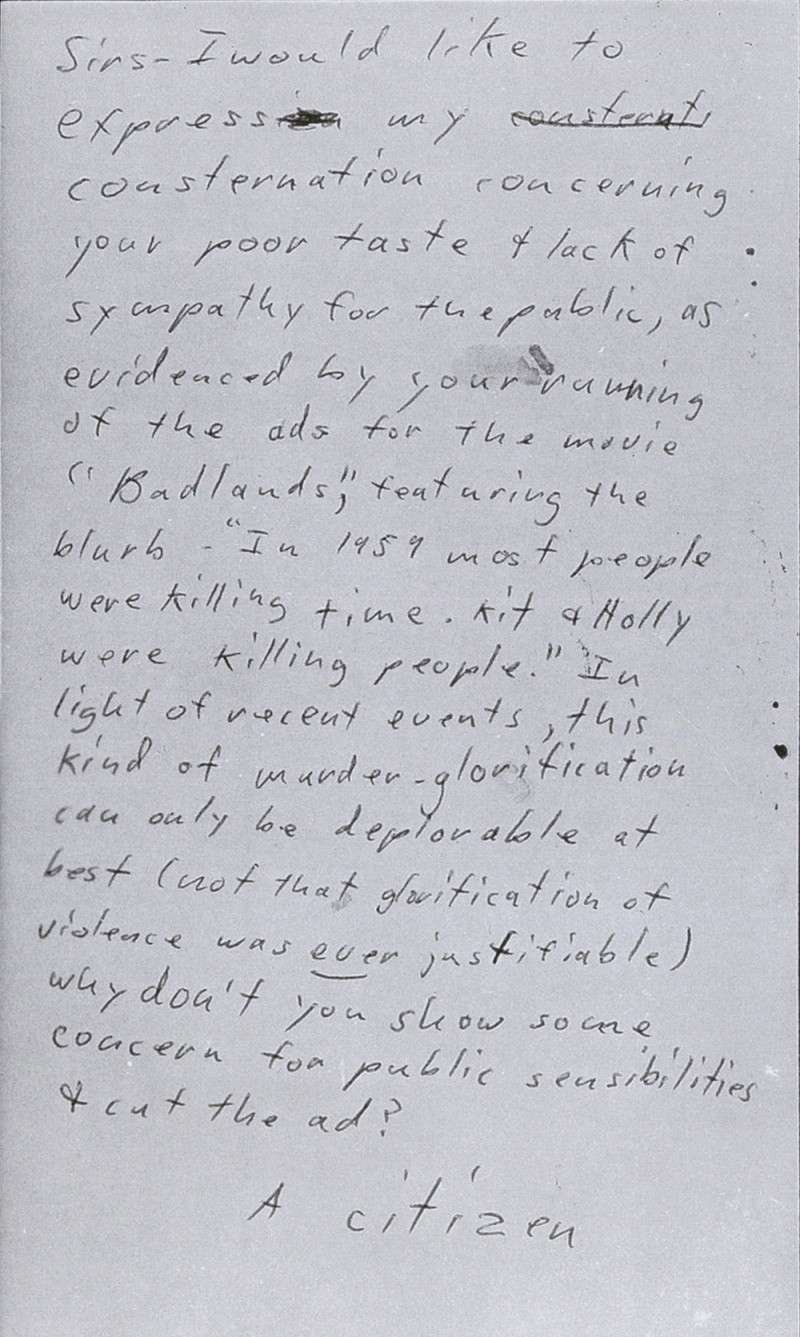 Sirs- I would like to
express my consternati
consternation concerning
your poor taste & lack of
sympathy for the public, as
evidenced by your running
of the ads for the movie
"Badlands," featuring the
blurb - "In 1959 most people
were killing time. Kit & Holly
were killing people." In
light of recent events, this
kind of murder-glorification
can only be deplorable at
best (not that glorification of
violence was ever justifiable)
why don't you show some
concern for public sensibilities
& cut the ad?
A citizen